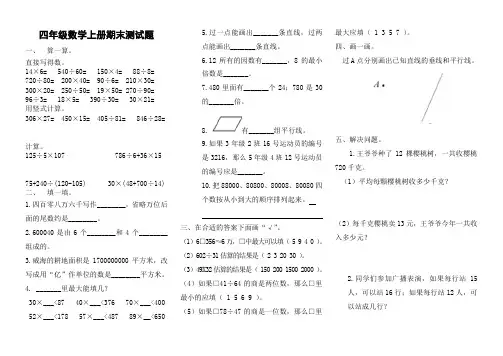 四年级数学上册期末测试题
一、 算一算。
直接写得数。
14×6= 540÷60= 150×4= 88÷8=
720÷80= 200×40= 90÷6= 210×30=
300×20= 250÷50= 19×50= 270÷90=
96÷3= 18×5= 390÷30= 30×21=
用竖式计算。
306×27= 450×15= 405÷81= 846÷28=
计算。
125÷5×107 786÷6+36×15
75+240÷(120-105) 30×(48+700÷14)
二、 填一填。
1.四百零八万六千写作________，省略万位后面的尾数约是________。
2.600040是由6个________和4个________组成的。
3.威海的耕地面积是1700000000平方米，改写成用“亿”作单位的数是________平方米。
4. _______里最大能填几？
30×___<87 40×___<376 70×___<400
52×___<178 57×___<487 89×__<650
5.过一点能画出_______条直线，过两点能画出_______条直线。
6.12所有的因数有_______，8的最小倍数是_______。
7.480里面有_______个24；780是30的_______倍。
8. 有_______组平行线。
9.如果3年级2班16号运动员的编号是3216，那么5年级4班12号运动员的编号应是_______。
10.把88000、80800、80008、80080四个数按从小到大的顺序排列起来。__
三、在合适的答案下面画“√”。
（1）6□356≈6万，□中最大可以填（5 9 4 0）。
（2）602÷31估算的结果是（2 3 20 30）。
（3）49X32估算的结果是（150 200 1500 2000）。
（4）如果□41÷64的商是两位数，那么□里最小的应填（1 5 6 9）。
（5）如果□78÷47的商是一位数，那么□里最大应填（1 3 5 7）。
四、画一画。
过A点分别画出己知直线的垂线和平行线。
A
五、解决问题。
1.王爷爷种了12棵樱桃树，一共收樱桃720千克。
（1）平均每颗樱桃树收多少千克？
（2）每千克樱桃卖13元，王爷爷今年一共收入多少元？
2.同学们参加广播表演，如果每行站15人，可以站16行；如果每行站12人，可以站成几行？